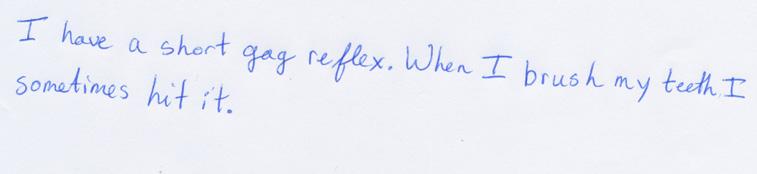 I have a short gag reflex. When I brush my teeth I
sometimes hit it.